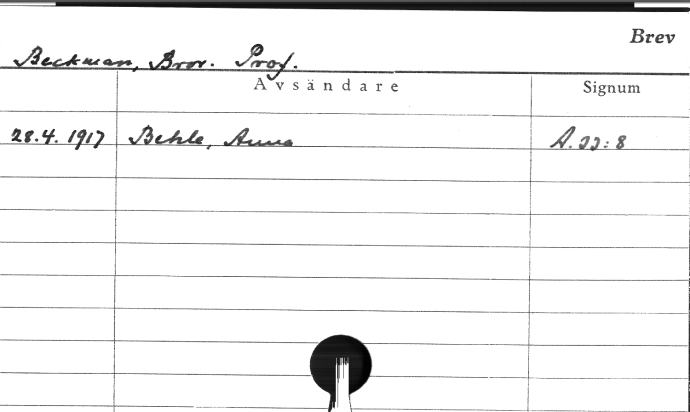 Brev
Beckman, Bror. Prof.
Avsändare Signum
28.4.1917 Behle, Anna A. 22:8